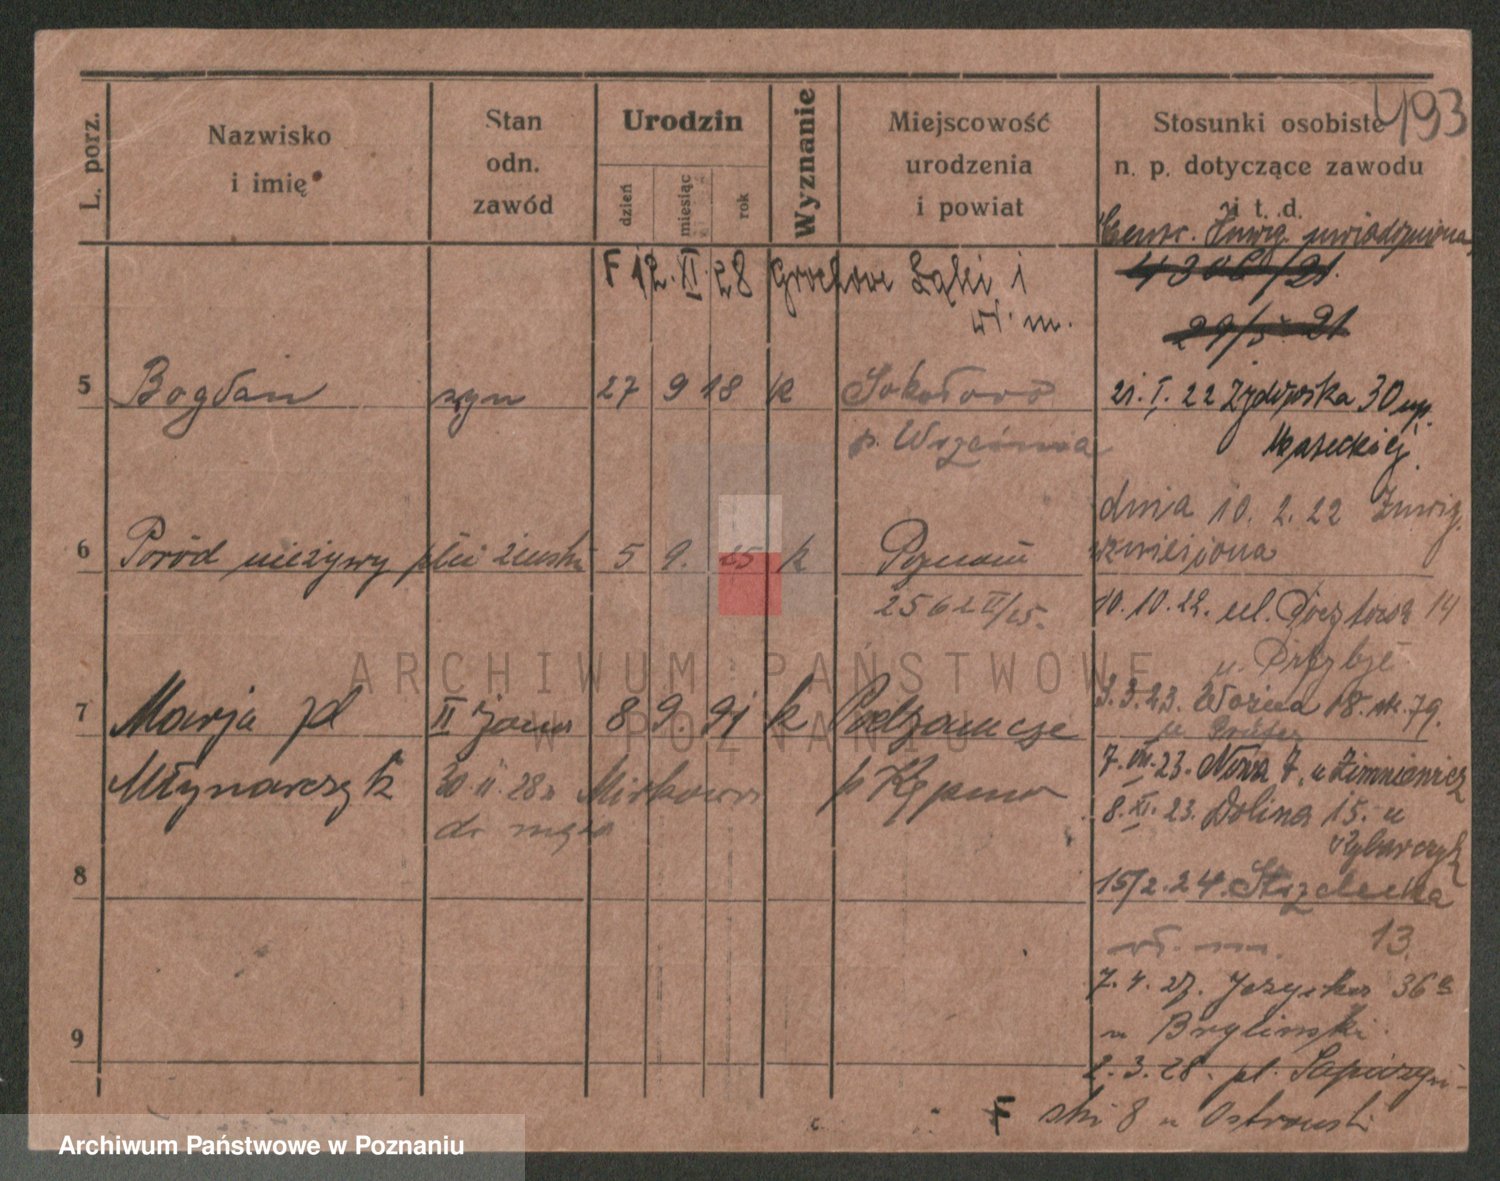 493
L. porz.
Nazwisko
i imię
Stan
odn.
zawód
Urodzin
dzień
miesiąc
rok
Wyznanie
Miejscowość
urodzenia
i powiat
Stosunki osobiste
n. p. dotyczące zawodu
i t. d.
F 12. XI. 28 Grochowe Łąki 1
wł. m.
29/5 21
5 Bogdan syn 27 9 18 k Sokołowo
p. Września
21. I. 22 Żydowska 30 up.
Maseckiej
dnia 10. 2. 22
6 Poród nieżywy płci żeńskiej 5 9. 25 k Poznań
2562 II/25.
10. 10. 22. ul. Pocztowa 14
u. Przybył
3. 3. 23. Woźna 18. m. 79.
7 Marja pl II żona 8 9. 91 k Podzamcze
Młynarczyk 30 11. 28 Mirkowa p Kępno
do męża
7. VII. 23. Nowa 7. u Zimniewicz
8. XI. 23. Dolina 15. u
Rybarczyk
8
15/2. 24. Strzelecka
13.
wł. m.
7. 4. 27. Jeżycka 36a
u Bryliński
9
2. 3. 28. pl. Sapieżyń-
F ski 8 u Ostrowski
ARCHIWUM PAŃSTWOWE
W POZNANIU
Archiwum Państwowe w Poznaniu